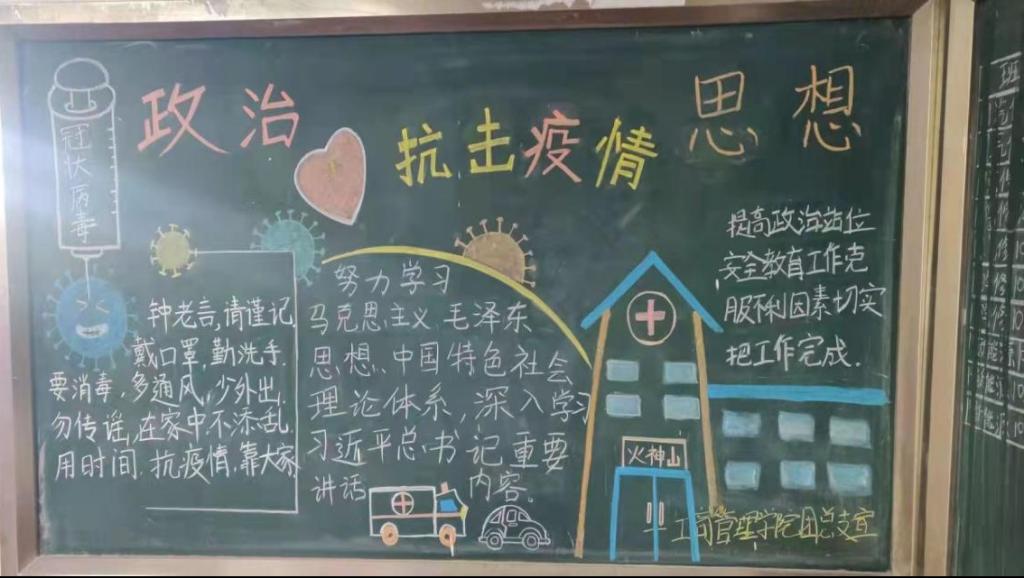 政治
抗击疫情
思想
冠状病毒
钟老言,请谨记
戴口罩,勤洗手
要消毒,多通风,少外出,
勿传谣,在家中不添乱
用时间,抗疫情,靠大家
努力学习
马克思主义、毛泽东
思想、中国特色社会
理论体系,深入学习
习近平总书记重要
讲话内容.
提高政治站位
安全教育工作克
服不利因素切实
把工作完成.
火神山
工商管理学院团总支宣
班